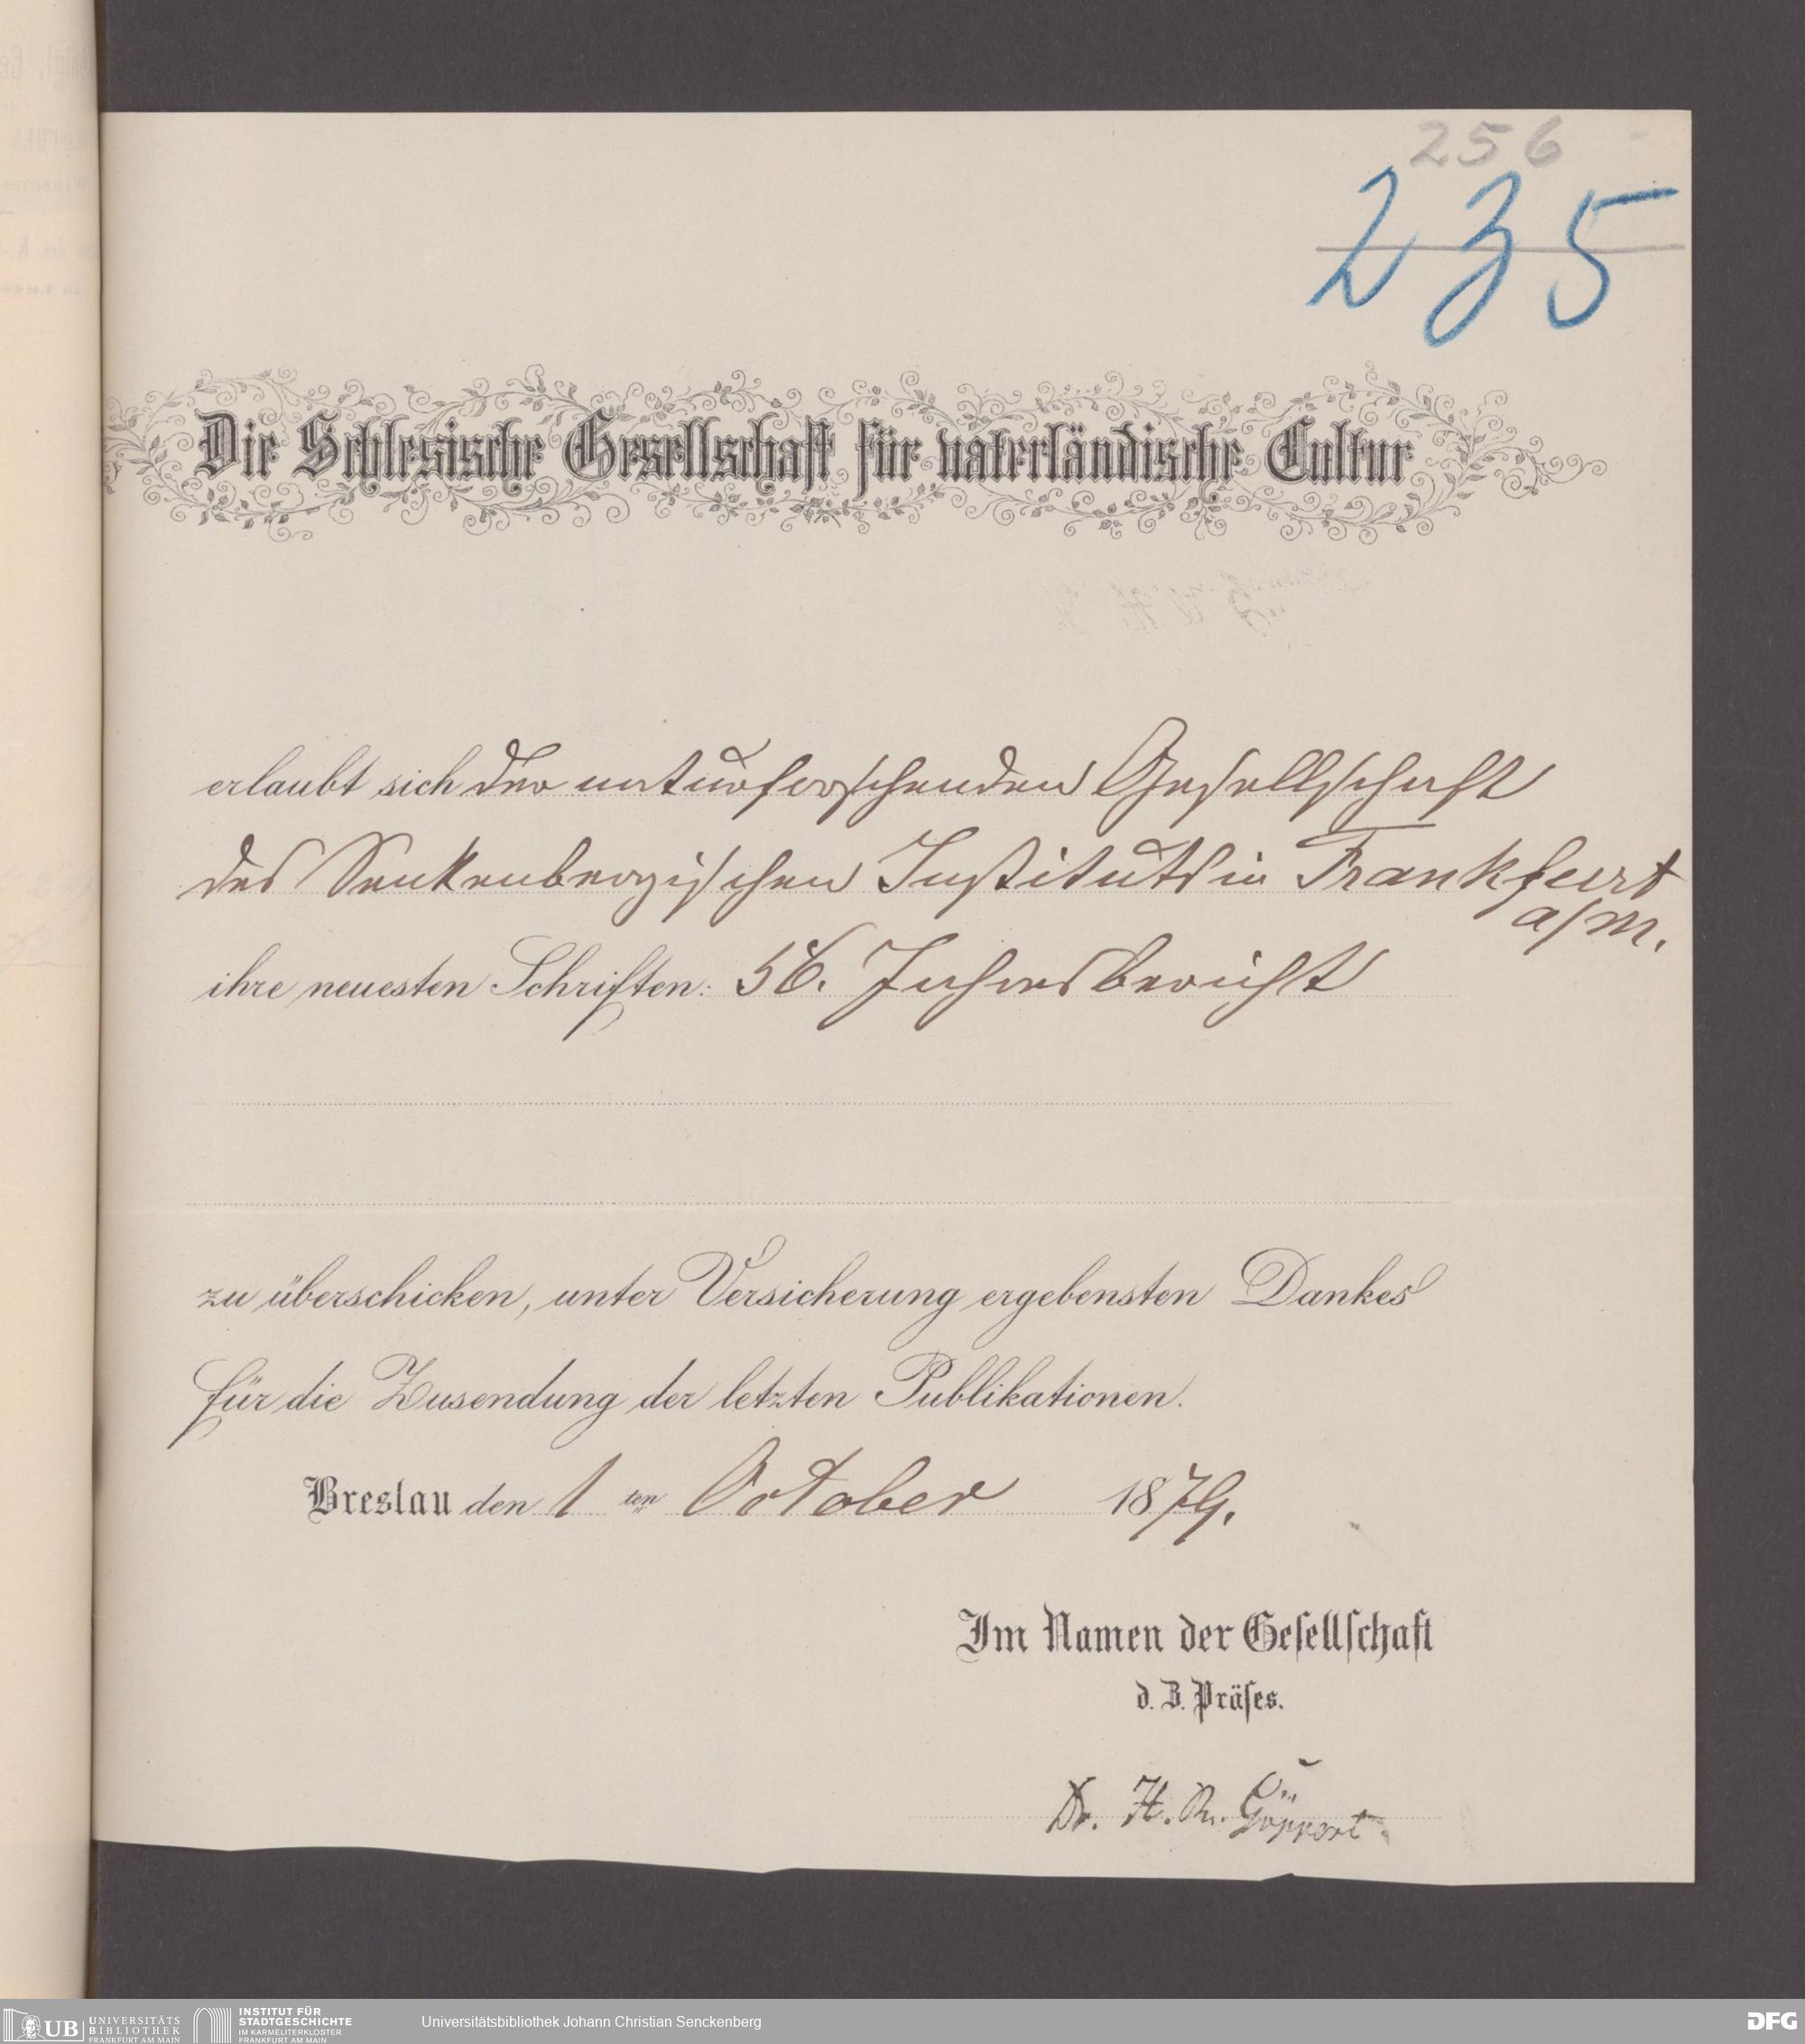 256
235
Die Schlesische Gesellschaft für vaterländische Cultur
erlaubt sich der naturforschenden Gesellschaft
des Senkenbergischen Instituts in Frankfurt
a/M.
ihre neuesten Schriften: 56. Jahresbericht
zu überschicken, unter Versicherung ergebensten Dankes
für die Zusendung der letzten Publikationen.
Breslau den 1 ten October 1879.
Im Namen der Gesellschaft
d. Z. Präses.
Dr. H. R. Göppert
UB UNIVERSITÄTS
BIBLIOTHEK
FRANKFURT AM MAIN
INSTITUT FÜR
STADTGESCHICHTE
IM KARMELITERKLOSTER
FRANKFURT AM MAIN
Universitätsbibliothek Johann Christian Senckenberg
DFG